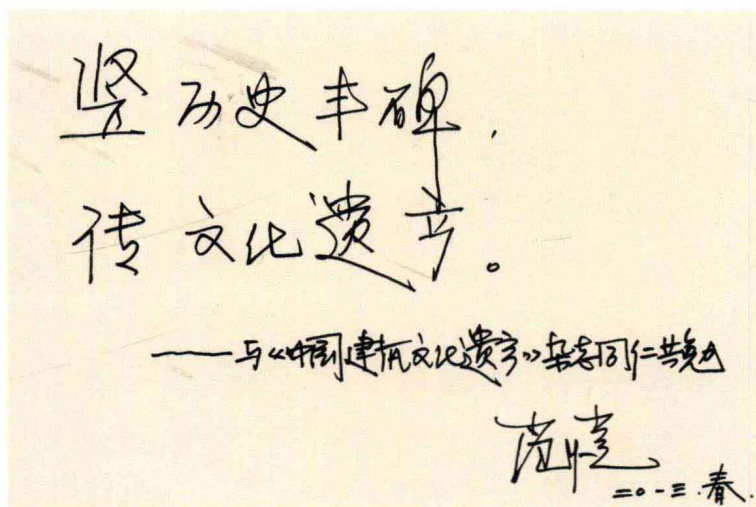 竖历史丰碑，
传文化遗产。
——与《中国建筑文化遗产》杂志同仁共勉
二〇一三.春.